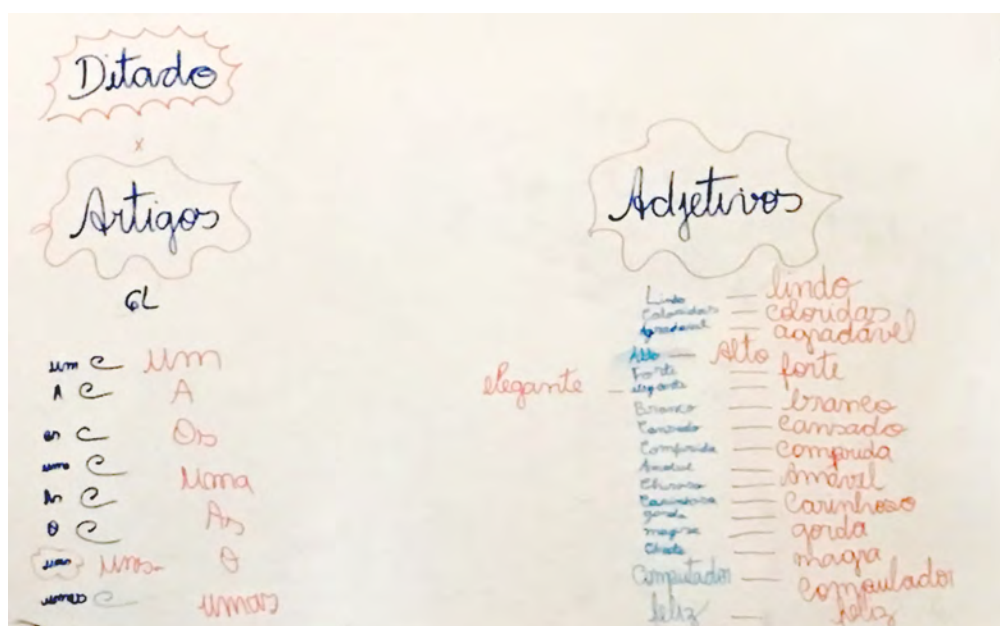 Ditado
x
Artigos
6L
um C um
A C A
os C Os
uma C Uma
As C As
O C O
uns unos
umas C umas
Adjetivos
Lindo — lindo
Coloridas — coloridas
Agradavel — agradável
Alto — Alto
Forte — forte
elegante — elegante
Branco — branco
Cansado — cansado
Comprida — comprida
Amavel — Amável
Carinhoso — Carinhoso
gorda — gorda
magra — magra
Chato
Computador — Compoulador
feliz — feliz